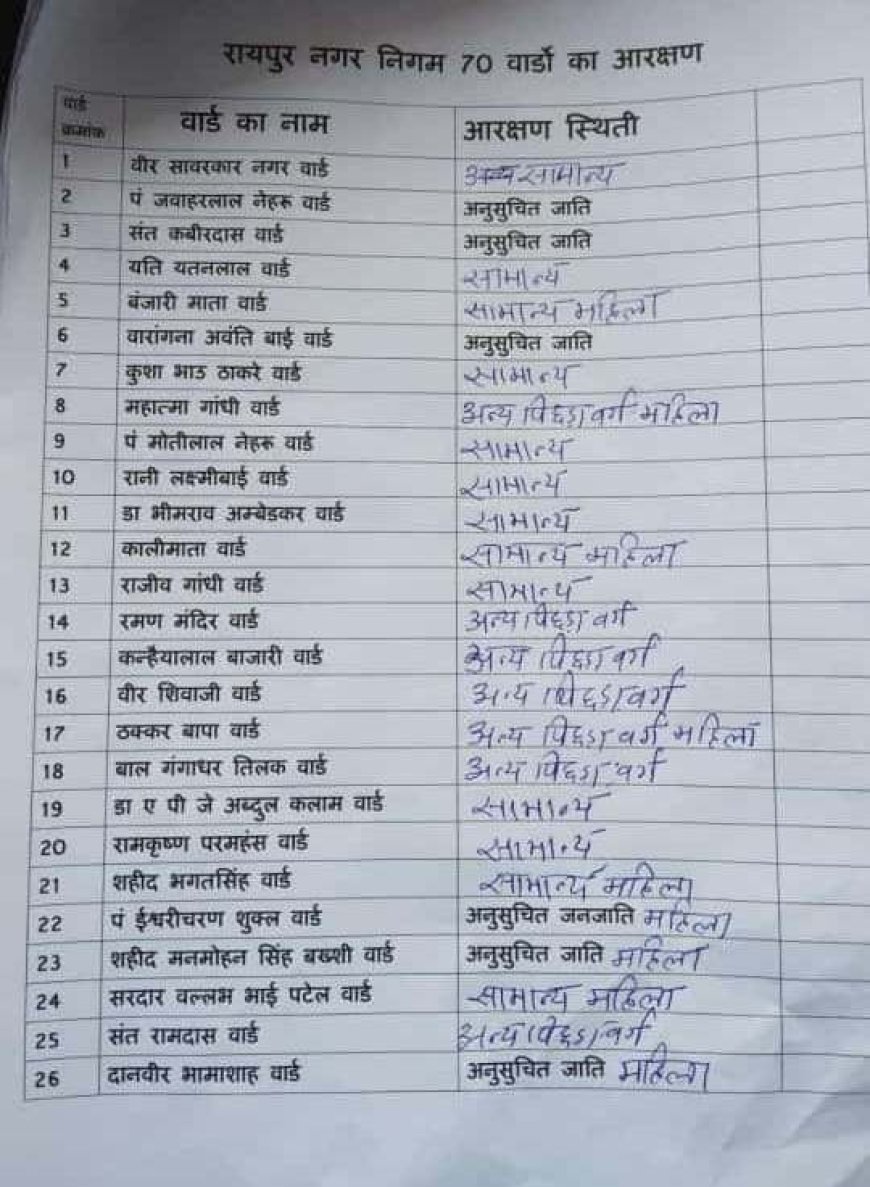 रायपुर नगर निगम 70 वार्डो का आरक्षण
वार्ड क्रमांक वार्ड का नाम आरक्षण स्थिती
1 वीर सावरकार नगर वार्ड सामान्य
2 पं जवाहरलाल नेहरू वार्ड अनुसुचित जाति
3 संत कबीरदास वार्ड अनुसुचित जाति
4 यति यतनलाल वार्ड सामान्य
5 बंजारी माता वार्ड सामान्य महिला
6 वारांगना अवंति बाई वार्ड अनुसुचित जाति
7 कुशा भाउ ठाकरे वार्ड सामान्य
8 महात्मा गांधी वार्ड अन्य पिछडा वर्ग महिला
9 पं मोतीलाल नेहरू वार्ड सामान्य
10 रानी लक्ष्मीबाई वार्ड सामान्य
11 डा भीमराव अम्बेडकर वार्ड सामान्य
12 कालीमाता वार्ड सामान्य महिला
13 राजीव गांधी वार्ड सामान्य
14 रमण मंदिर वार्ड अन्य पिछडा वर्ग
15 कन्हैयालाल बाजारी वार्ड अन्य पिछडा वर्ग
16 वीर शिवाजी वार्ड अन्य पिछडा वर्ग
17 ठक्कर बापा वार्ड अन्य पिछडा वर्ग महिला
18 बाल गंगाधर तिलक वार्ड अन्य पिछडा वर्ग
19 डा ए पी जे अब्दुल कलाम वार्ड सामान्य
20 रामकृष्ण परमहंस वार्ड सामान्य
21 शहीद भगतसिंह वार्ड सामान्य महिला
22 पं ईश्वरीचरण शुक्ल वार्ड अनुसुचित जनजाति महिला
23 शहीद मनमोहन सिंह बख्शी वार्ड अनुसुचित जाति महिला
24 सरदार वल्लभ भाई पटेल वार्ड सामान्य महिला
25 संत रामदास वार्ड अन्य पिछडा वर्ग
26 दानवीर भामाशाह वार्ड अनुसुचित जाति महिला